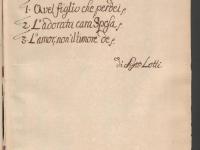 1. Quel figlio che perdei,
2. L'adorata cara Sposa
3. L'amor, non il timore de,
di Ant.o Lotti